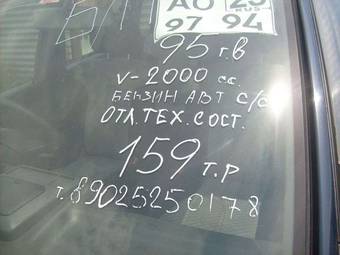 АО 25
RUS
97 94
95 г.в
V-2000 сс.
БЕНЗИН АВТ С/С
ОТЛ.ТЕХ.СОСТ.
159 т.р
т.89025250178